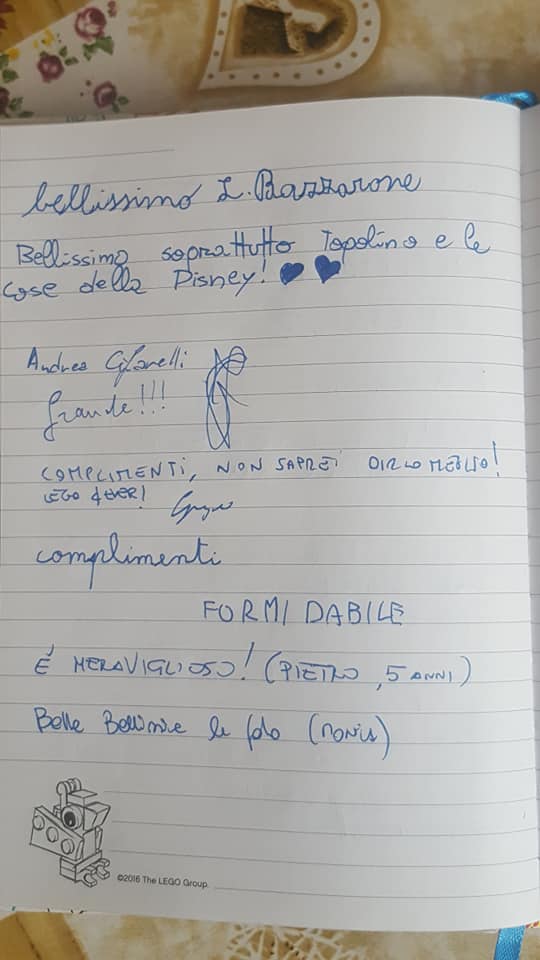 bellissimo L. Bazzarone
Bellissimo soprattutto Topolino e le
cose della Disney!
Andrea
Grande!!!
COMPLIMENTI, NON SAPREI DIRLO MEGLIO!
LEGO 4EVER!
complimenti
FORMIDABILE
É MERAVIGLIOSO! (PIETRO, 5 ANNI)
Belle Bellissime le foto
©2016 The LEGO Group.